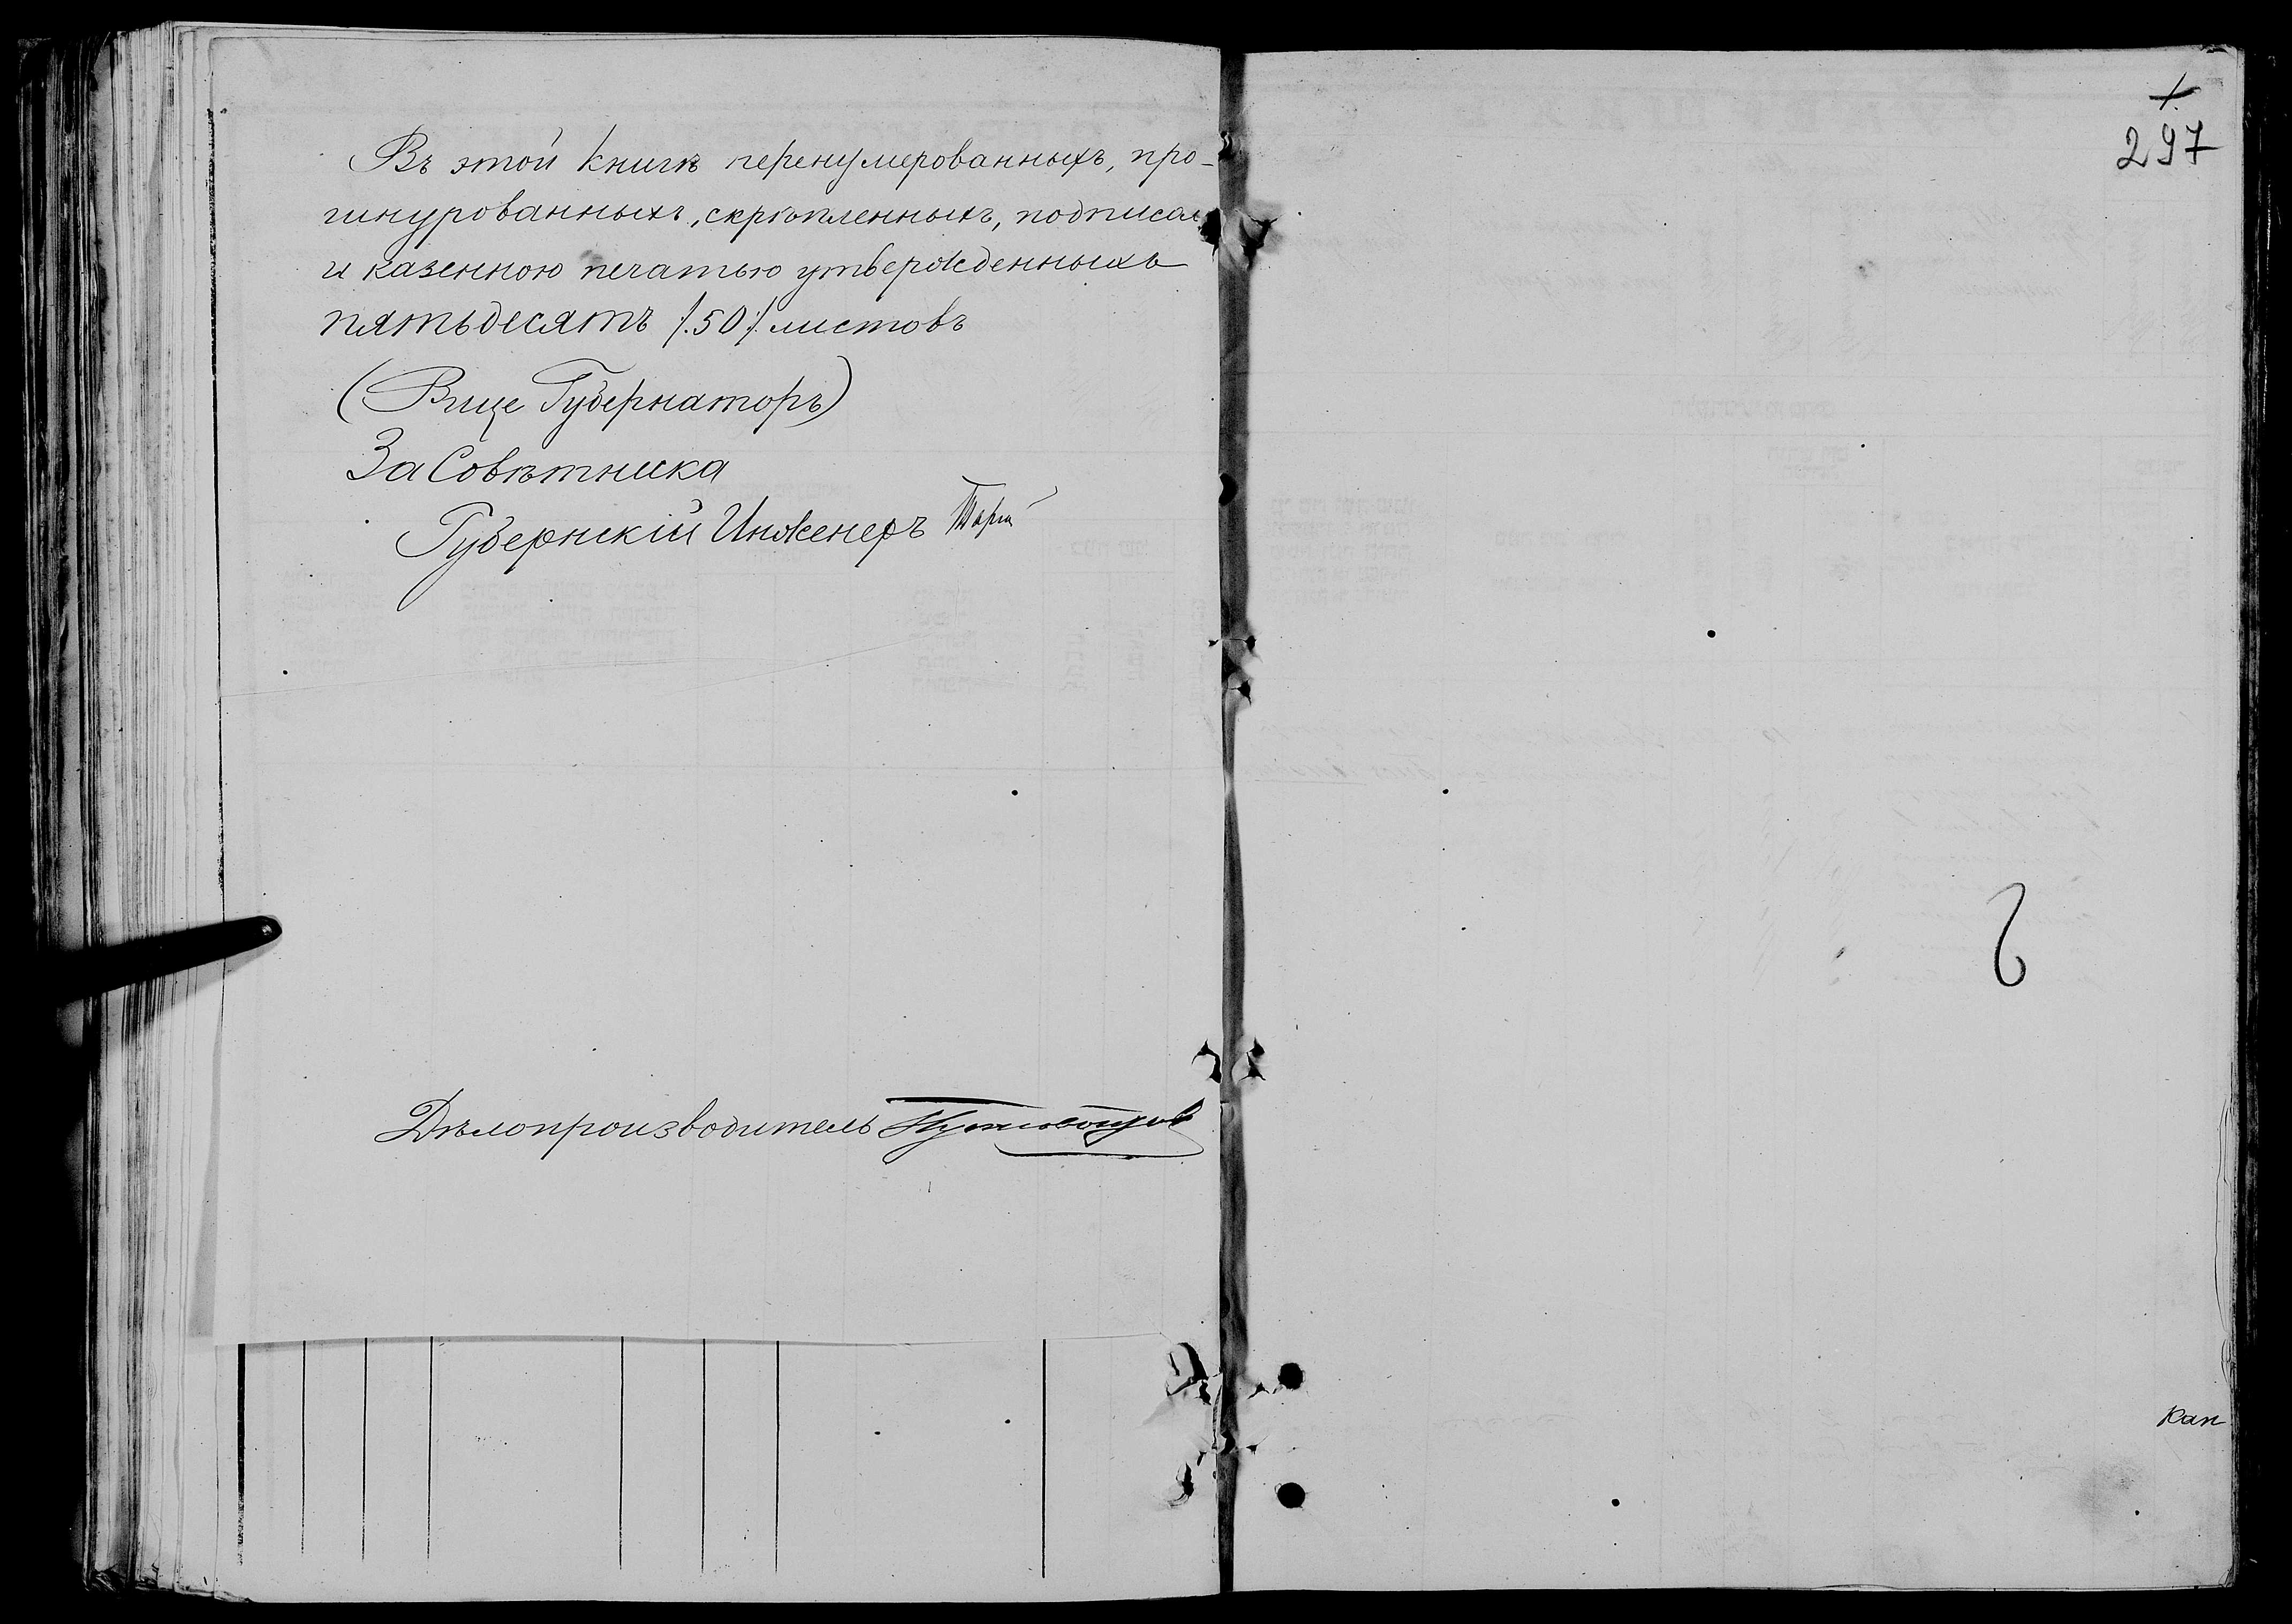 Въ этой книгѣ перенумерованныхъ, про-
шнурованныхъ, скрѣпленныхъ, подписан
и казенною печатью утвержденныхъ
пятьдесятъ /.50/. листовъ
(Вице Губернаторъ)
За Совѣтника
Губернскій Инженеръ
Дѣлопроизводитель
1.
297
Кап